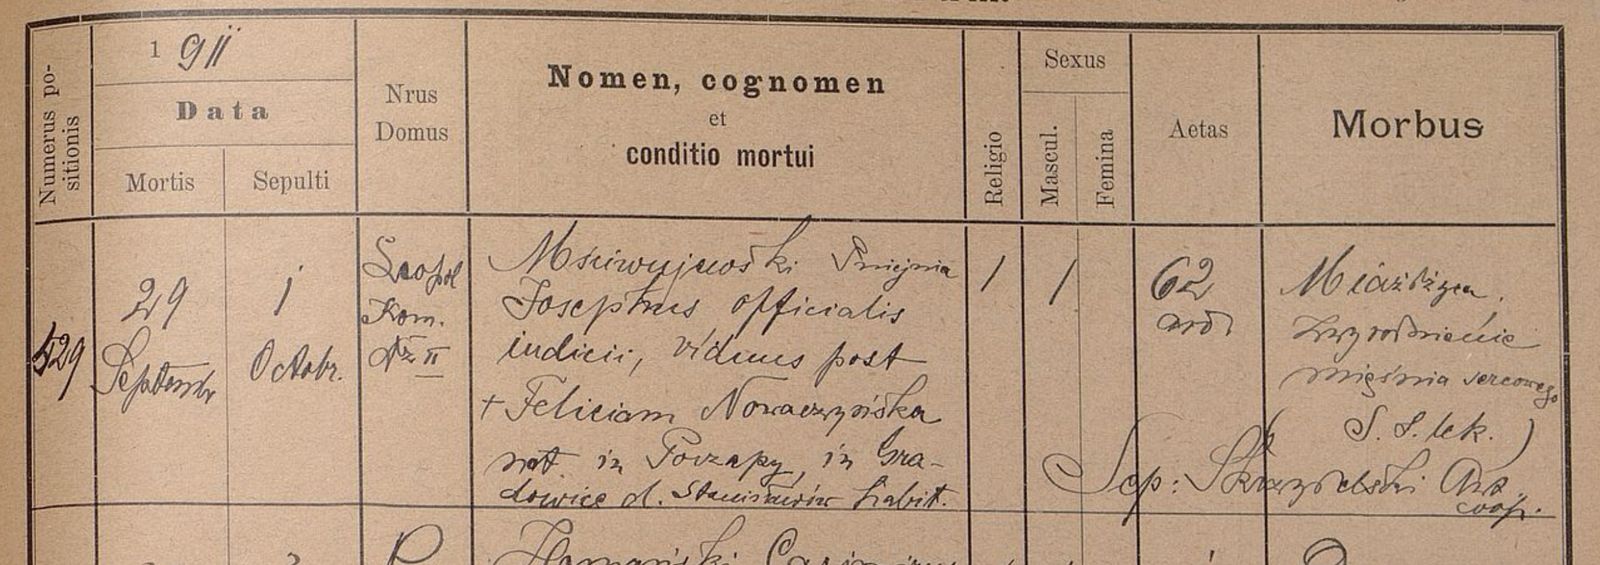 Numerus po-
sitionis
1911
Data
Mortis
Sepulti
Nrus
Domus
Nomen, cognomen
et
conditio mortui
Religio
Sexus
Mascul.
Femina
Aetas
Morbus
429
29
Septembr
1
Octobr.
Leopol
Kom.
II
Mściwujewski
Josephus officialis
iudicii, viduus post
+ Feliciam Nowaczyńska
nat. in Powzapy, in Gra-
dowice d. Stanisławów habit.
1
1
62
Miażdżyca.
Zwyrodnienie
mięśnia sercowego
S. S. lek.)
Sep: Skrzy
coop.